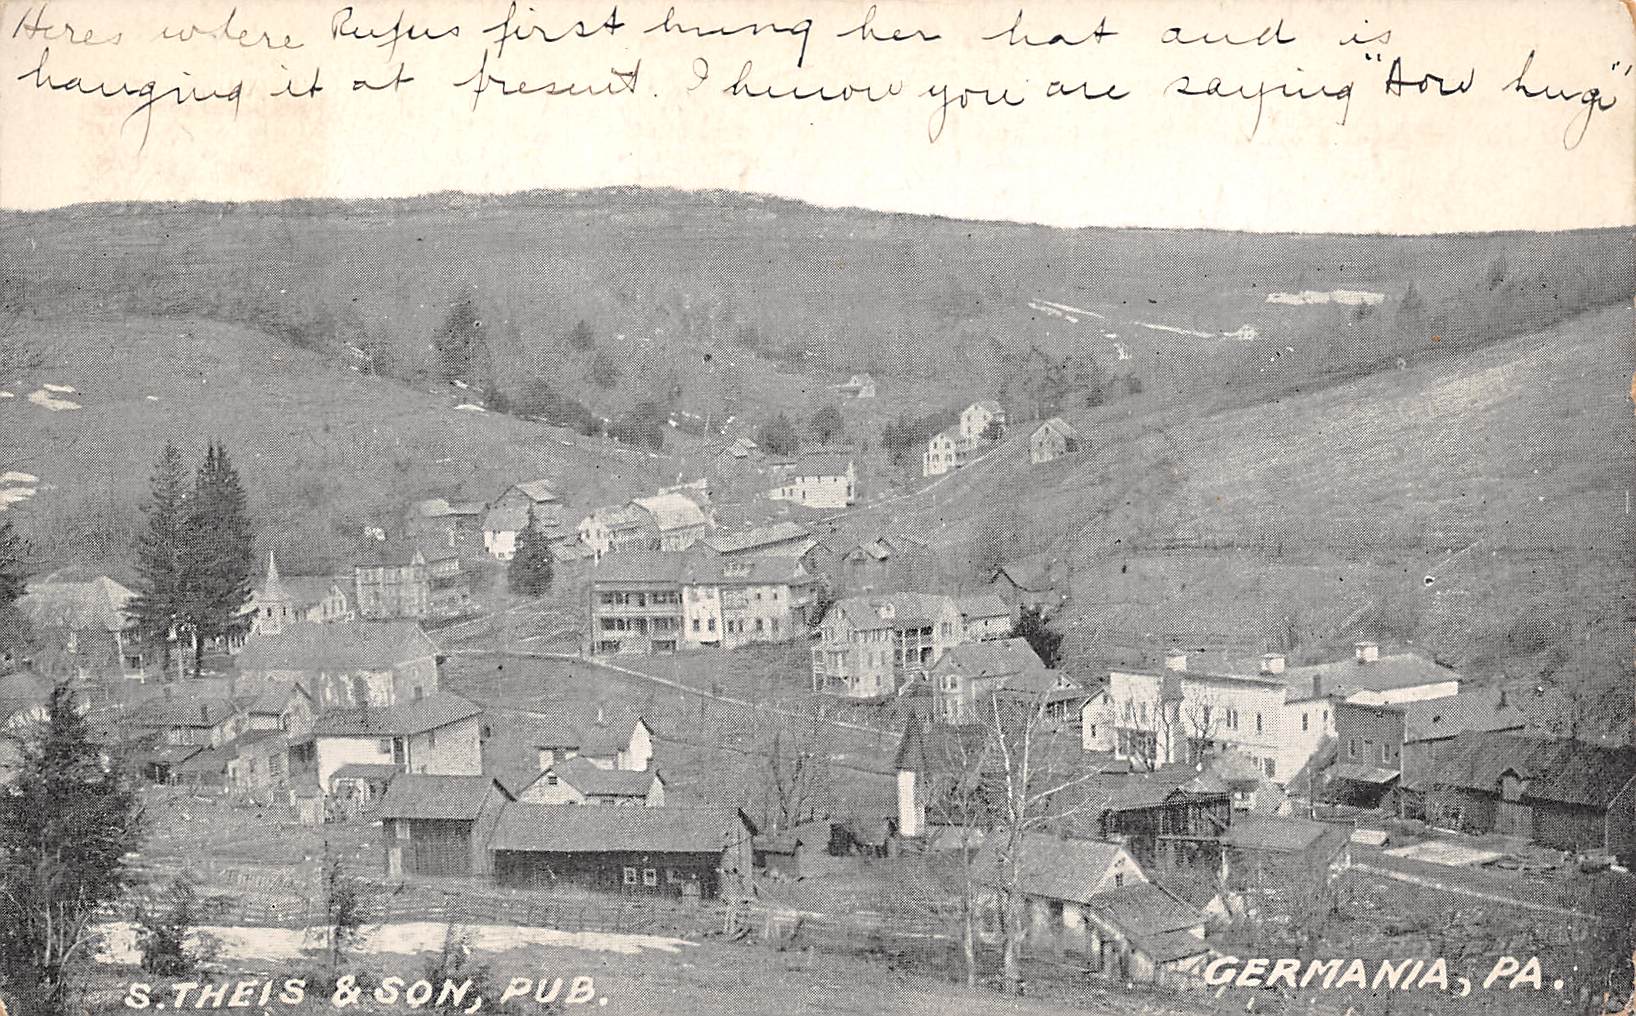 Heres where Rufus first hung her hat and is
hanging it at present. I know you are saying "How huge"
S. THEIS & SON, PUB.
GERMANIA, PA.